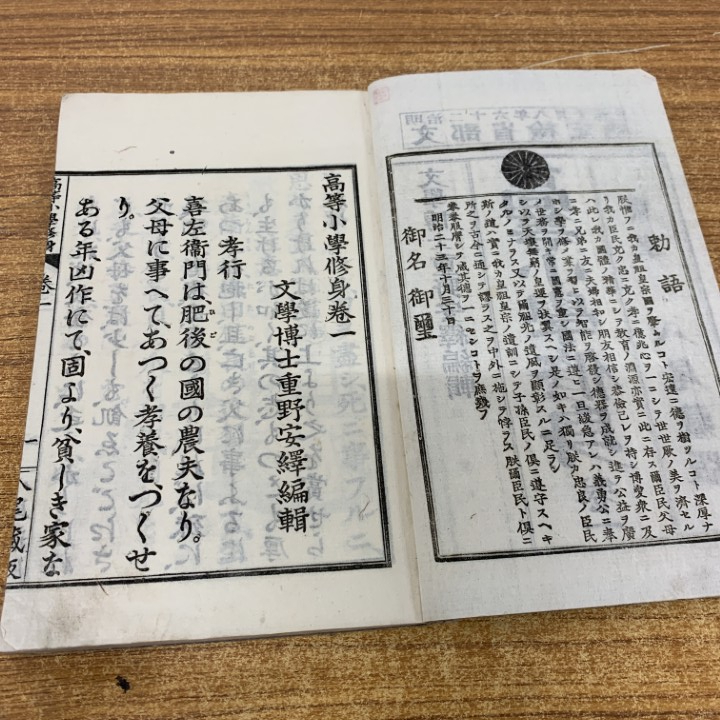 勅語
朕惟フニ我カ皇祖皇宗國ヲ肇ムルコト宏遠ニ德ヲ樹ツルコト深厚ナ
リ我カ臣民克ク忠ニ克ク孝ニ億兆心ヲ一ニシテ世世厥ノ美ヲ濟セル
ハ此レ我カ國體ノ精華ニシテ教育ノ淵源亦實ニ此ニ存ス爾臣民父母
ニ孝ニ兄弟ニ友ニ夫婦相和シ朋友相信シ恭儉己レヲ持シ博愛衆ニ及
ホシ學ヲ修メ業ヲ習ヒ以テ智能ヲ啓發シ德器ヲ成就シ進テ公益ヲ廣
メ世務ヲ開キ常ニ國憲ヲ重シ國法ニ遵ヒ一旦緩急アレハ義勇公ニ奉
シ以テ天壤無窮ノ皇運ヲ扶翼スヘシ是ノ如キハ獨リ朕カ忠良ノ臣民
タルノミナラス又以テ爾祖先ノ遺風ヲ顯彰スルニ足ラン
斯ノ道ハ實ニ我カ皇祖皇宗ノ遺訓ニシテ子孫臣民ノ俱ニ遵守スヘキ
所之ヲ古今ニ通シテ謬ラス之ヲ中外ニ施シテ悖ラス朕爾臣民ト俱ニ
拳拳服膺シテ咸其德ヲ一ニセンコトヲ庶幾フ
明治二十三年十月三十日
御名 御璽
高等小學修身卷一
文學博士重野安繹編輯
孝行
喜左衞門は、肥後の國の農夫なり。
父母に事へて、あつく孝養を、つくせ
り。
ある年、凶作にて、固より、貧しき家な
高等小學修身 卷一
一 八尾藏版